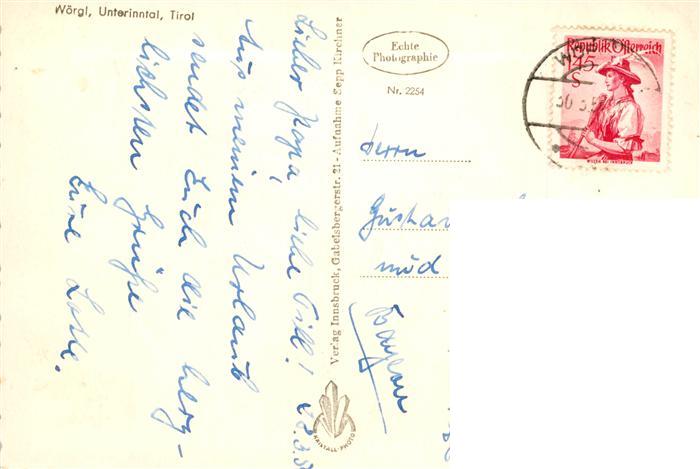 Wörgl, Unterinntal, Tirol
Lieber Papa, liebe Till!
Aus meinem Urlaub
sendet Euch die herz-
lichsten Grüße
Eure Lotte.
Verlag Innsbruck, Gabelsbergerstr. 21 - Aufnahme Sepp Kirchner
KRISTALL-PHOTO
Echte
Photographie
Nr. 2254
Republik Österreich
1.45
S
Herrn
Bayern